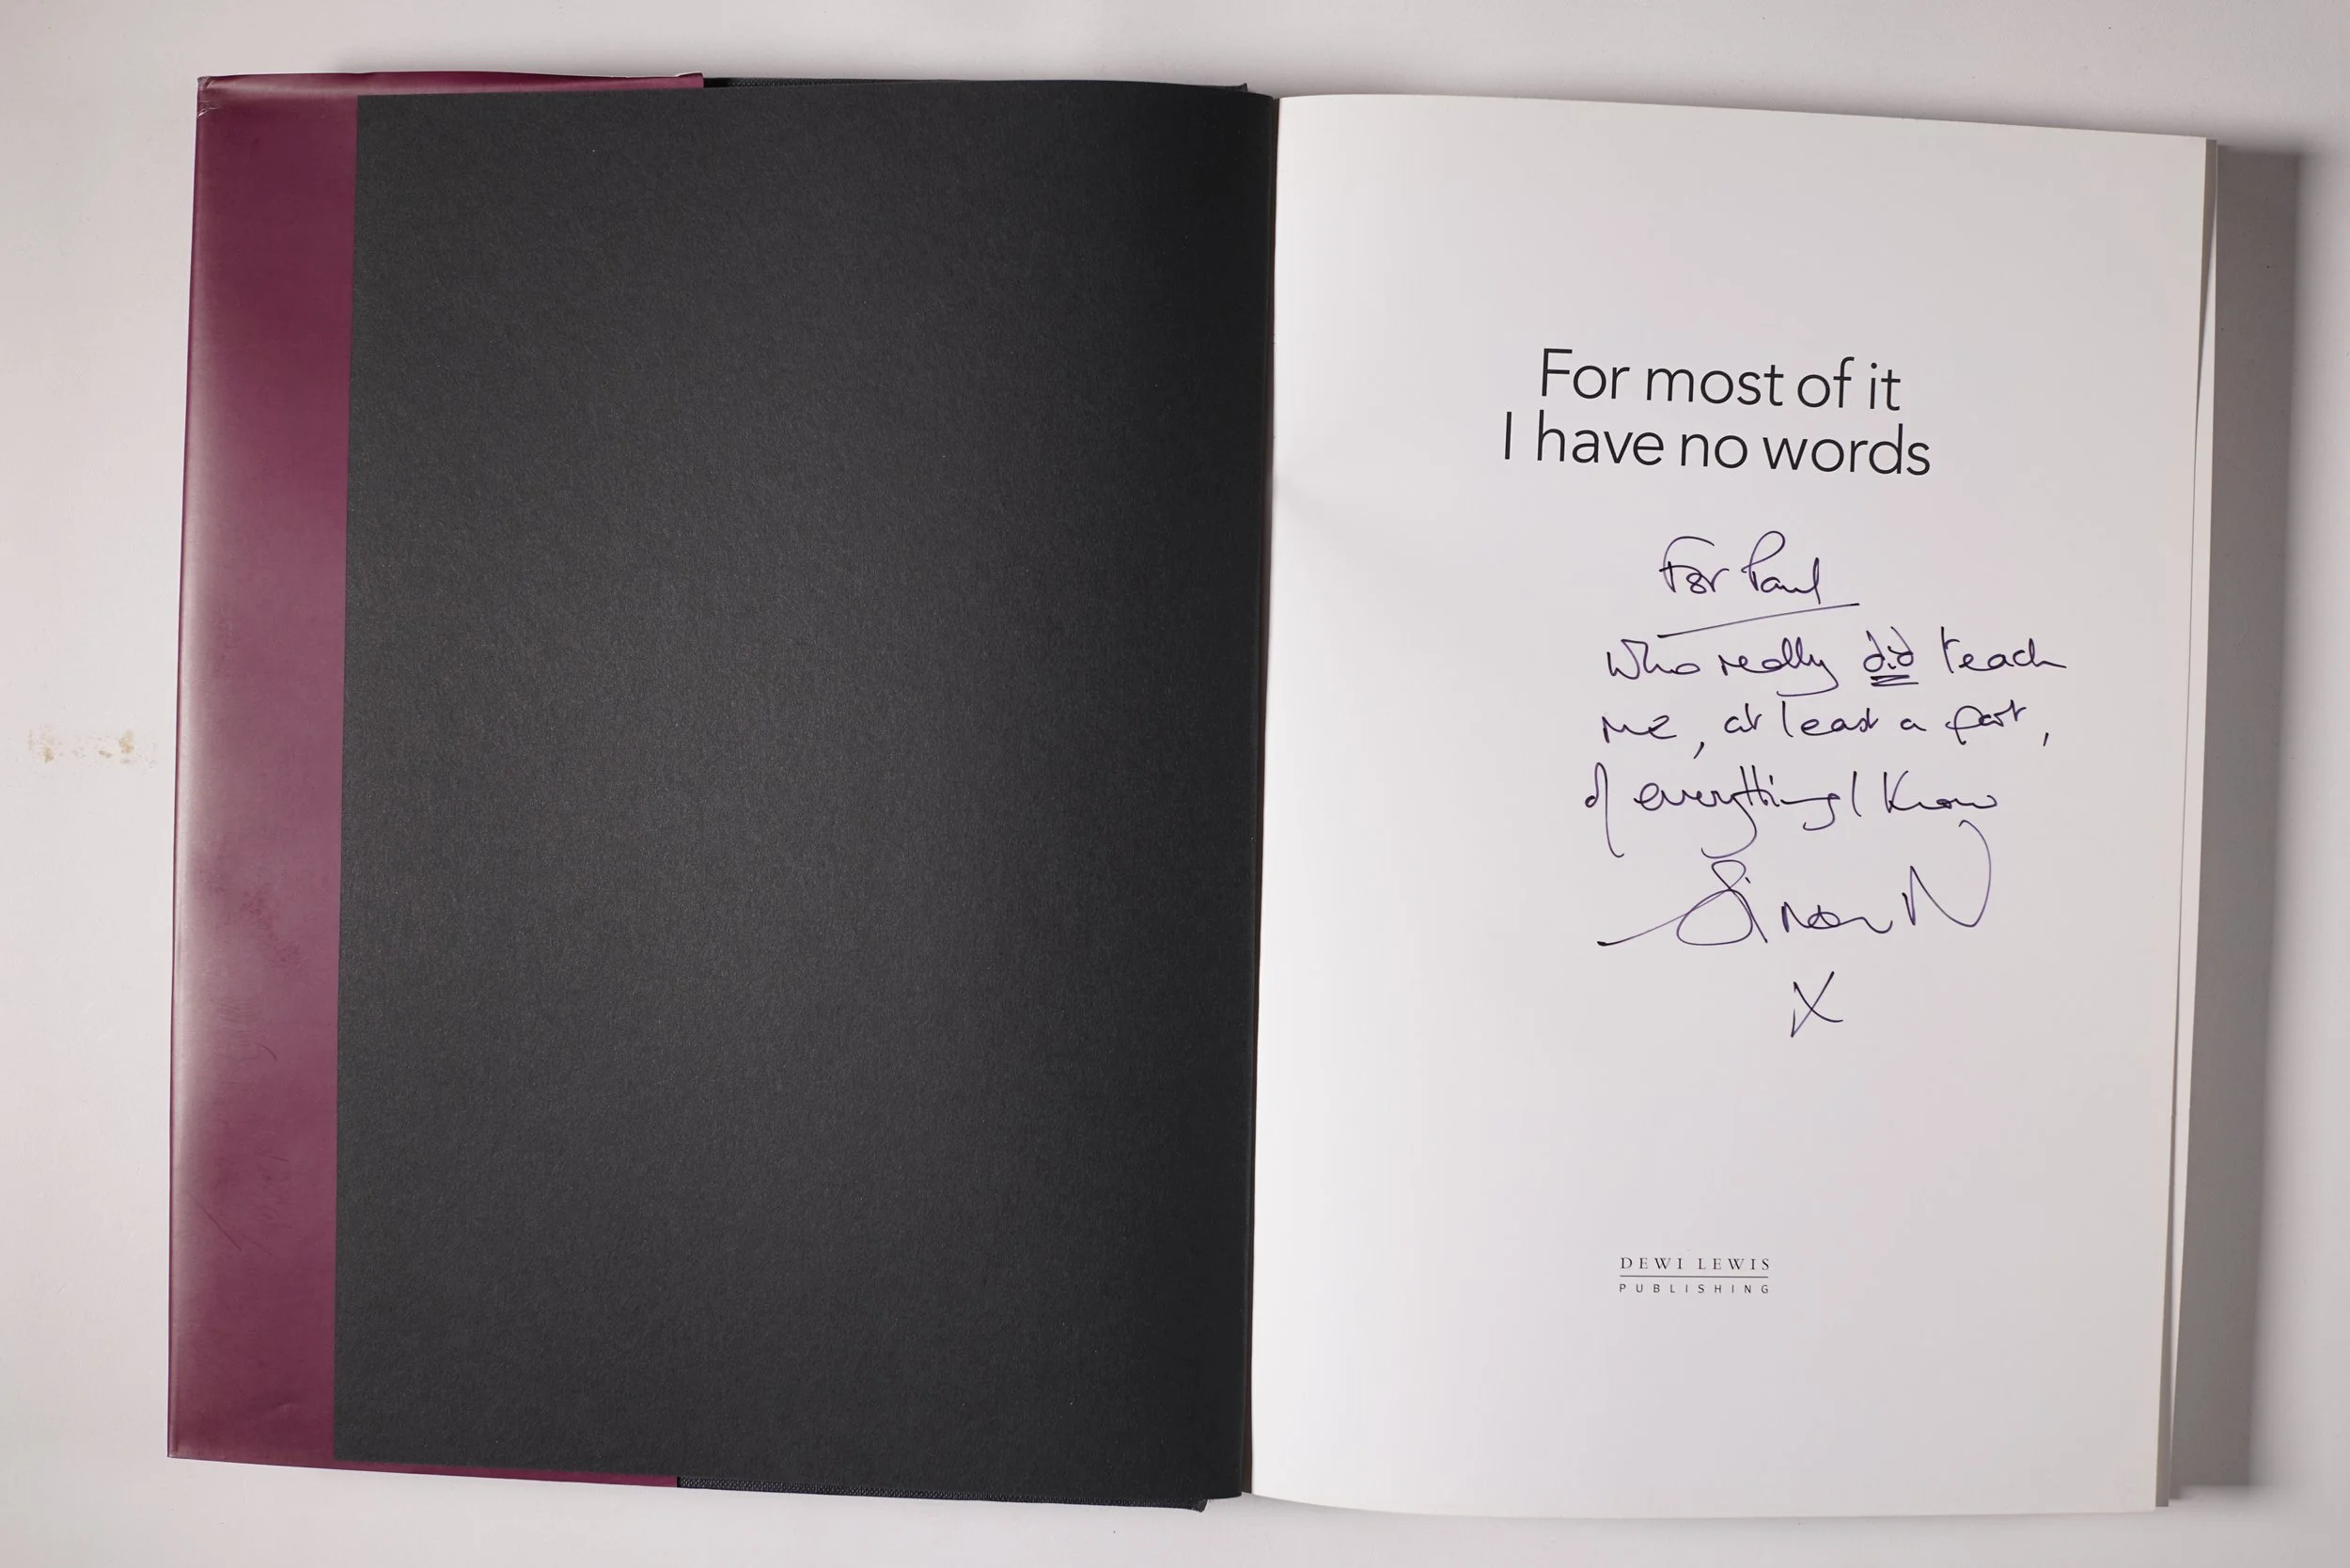 For most of it
I have no words
For Paul
Who really did teach
me, at least a part,
of everything I know
Simon N
X
DEWI LEWIS
PUBLISHING